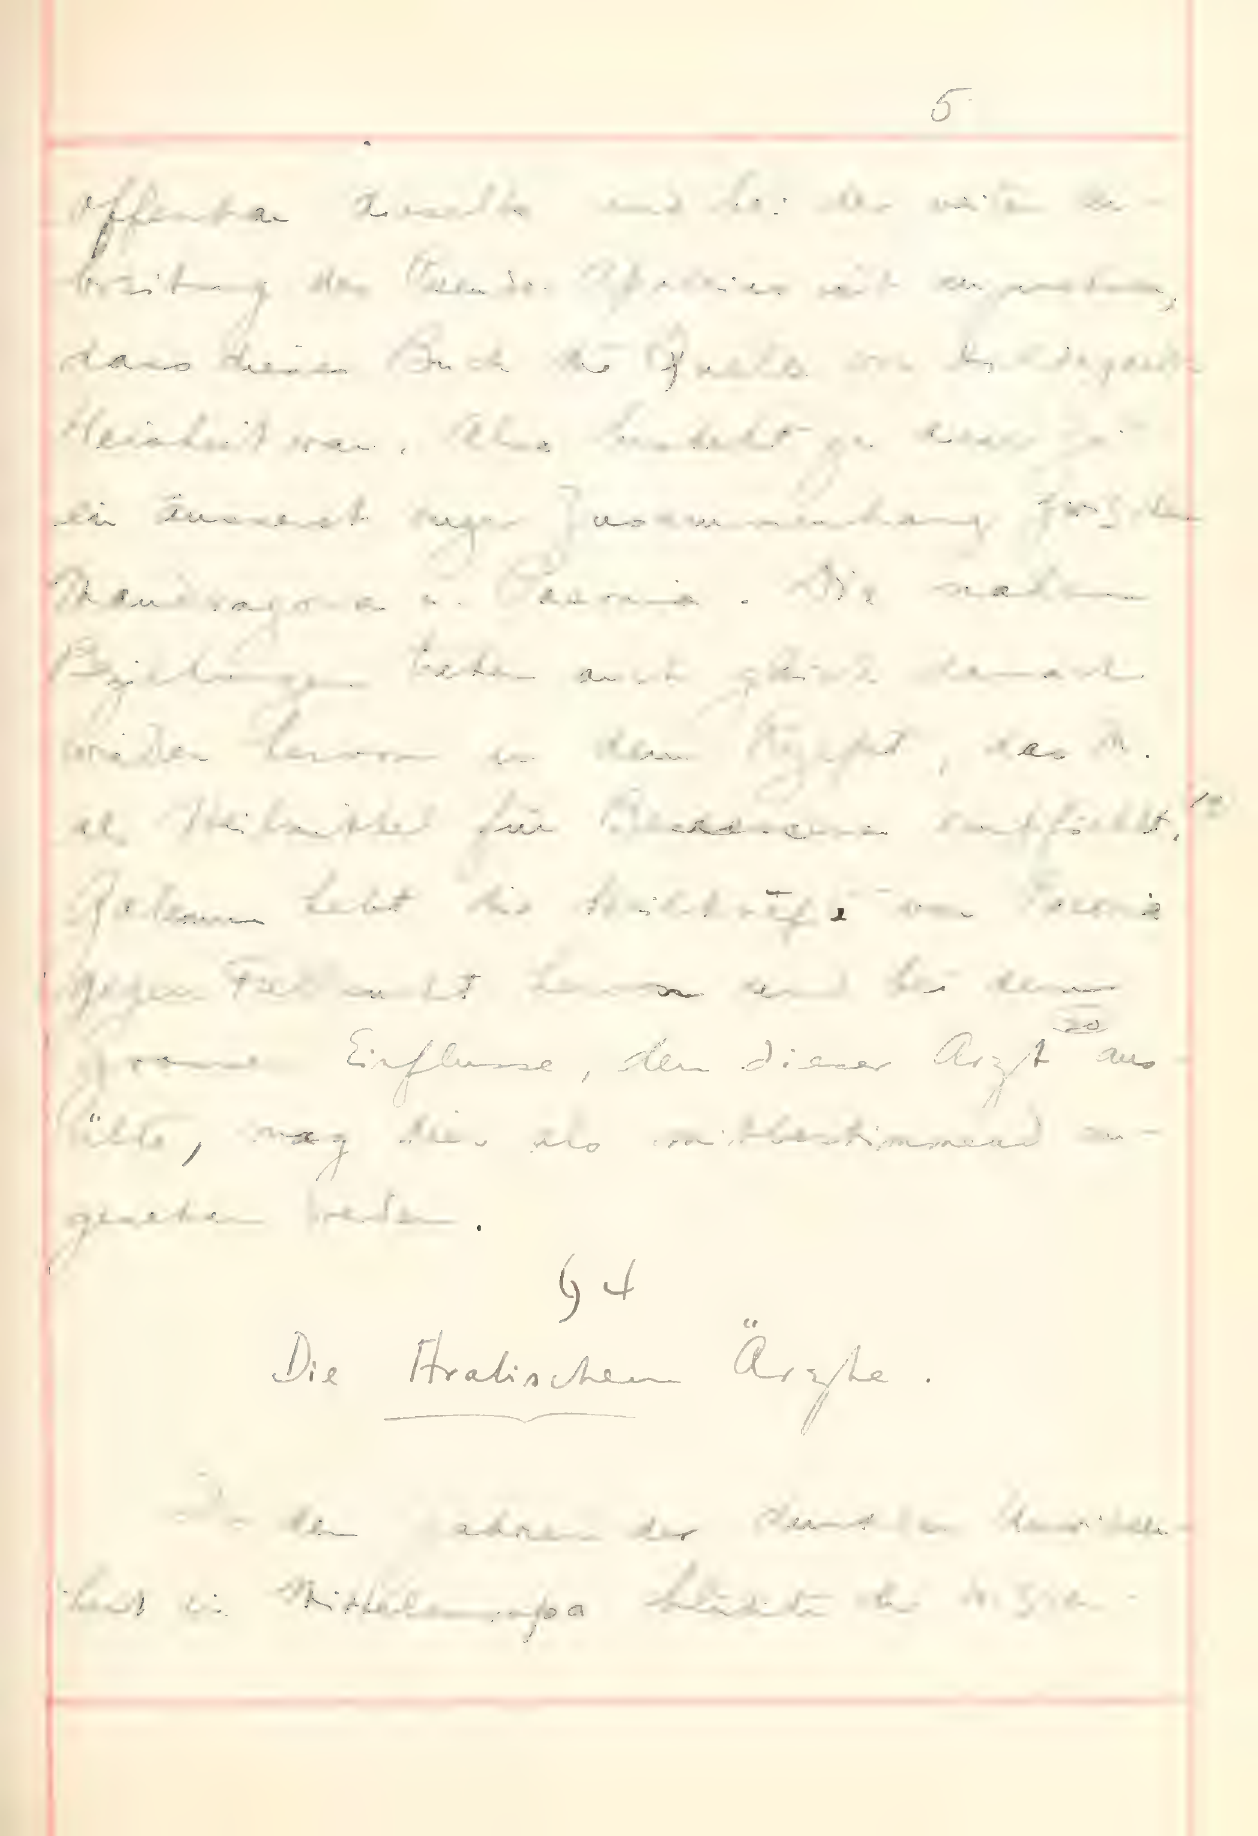 5
offenbar dieselbe und bei der weiten Ver-
breitung des Pseudo-Apuleius ist anzunehmen,
dass dieses Buch die Quelle von Hildegards
Weisheit war. Also besteht zu dieser Zeit
ein äusserst enger Zusammenhang zwischen
Mandragora u. Paeonia. Die nahen
Beziehungen treten auch gleich danach
wieder hervor in dem Rezept, das M.
als Heilmittel für Besessene empfiehlt.
Galenus hebt die Heilkräfte von Paeonia
gegen Fallsucht hervor und bei dem
20
grossen Einflusse, den dieser Arzt aus-
übte, mag dies als mitbestimmend an-
gesehen werden.
§ 4
Die Arabischen Ärzte.
In den Jahren der dunklen Unwissen-
heit in Mitteleuropa blühte die